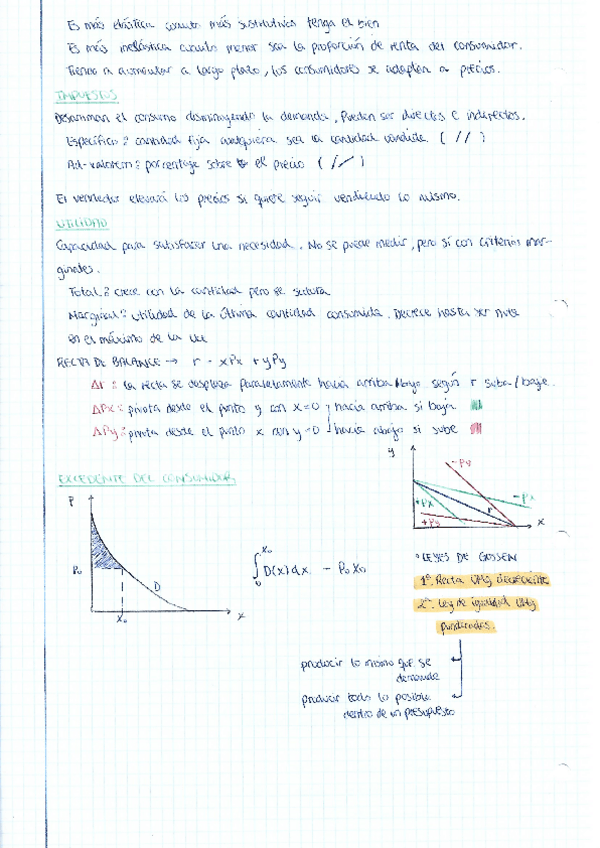 Es más elástica cuanto más sustitutivos tenga el bien
Es más inelástica cuanto menor sea la proporción de renta del consumidor.
Tiende a aumentar a largo plazo, los consumidores se adaptan a precios.
IMPUESTOS
Desaniman el consumo disminuyendo la demanda. Pueden ser directos e indirectos.
Específico: cantidad fija cualquiera sea la cantidad vendida. ( // )
Ad-valorem: porcentaje sobre el precio ( // )
El vendedor elevará los precios si quiere seguir vendiendo lo mismo.
UTILIDAD
Capacidad para satisfacer una necesidad. No se puede medir, pero sí con criterios mar-
ginales.
Total: crece con la cantidad pero se satura
Marginal: utilidad de la última cantidad consumida. Decrece hasta ser nula
en el máximo de la
RECTA DE BALANCE → r = xPx + yPy
Δr: la recta se desplaza paralelamente hacia arriba/bajo según r suba/baje.
ΔPx: pivota desde el punto y con x=0 hacia arriba si baja
ΔPy: pivota desde el punto x con y=0 hacia abajo si sube
y
-Py
-Px
r
+Px
+Py
x
EXCEDENTE DEL CONSUMIDOR
P
P₀
D
x₀
x
∫₀^x₀ D(x)dx - P₀X₀
LEYES DE GOSSEN
1ª. Recta UMg decreciente
2ª. Ley de igualdad UMg
ponderadas.
producir lo mismo que se
demande
producir todo lo posible
dentro de un presupuesto